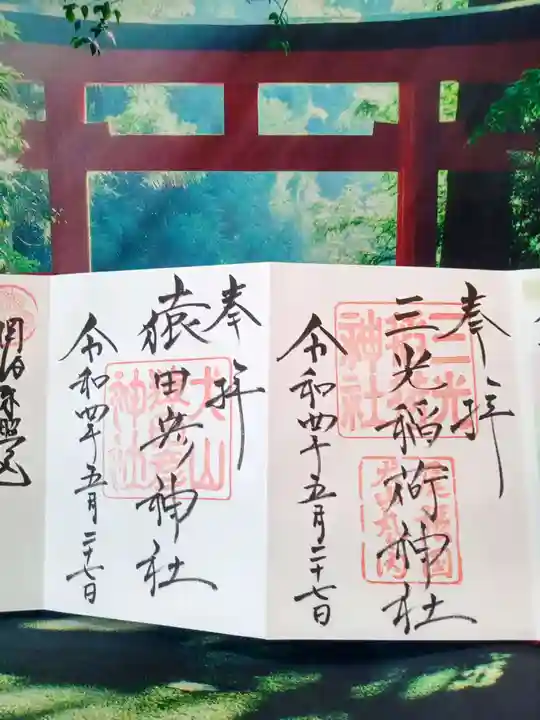 奉拝
三光稲荷神社
令和四年五月二十七日
三光稲荷神社
犬山丸の内
奉拝
猿田彦神社
令和四年五月二十七日
犬山猿田彦神社